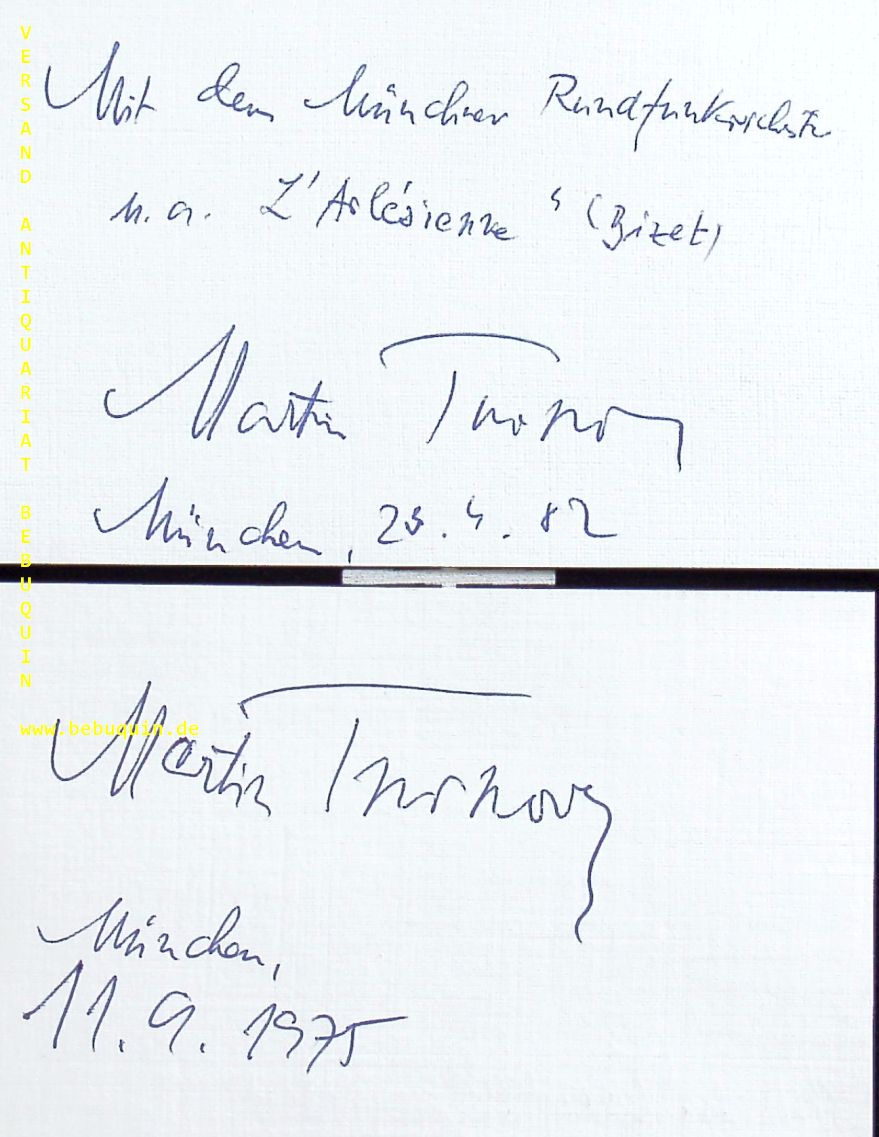 Mit dem Münchner Rundfunkorchester
u. a. L'Arlésienne " (Bizet)
Martin Turnovský
München, 23.4.82
Martin Turnovský
München,
11.9.1975
VERSAND ANTIQUARIAT BEBUQUIN
www.bebuquin.de